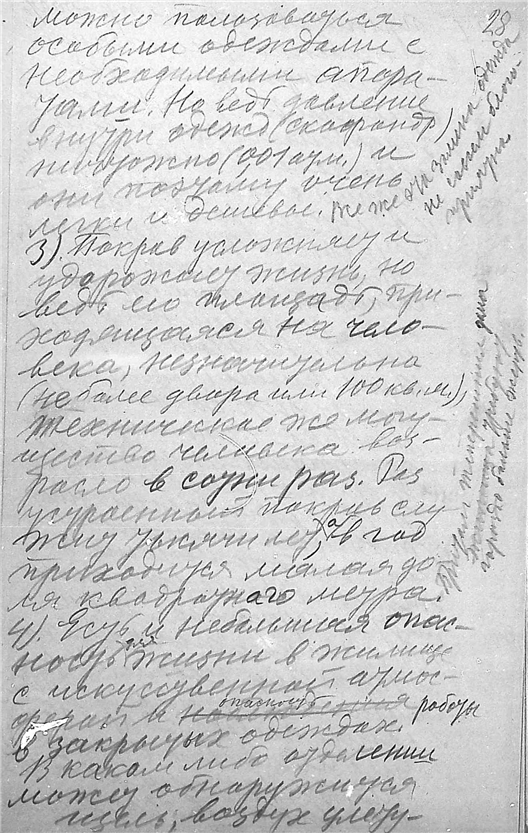 28
можно пользоваться
особыми одеждами с
необходимыми апора-
тами. Но ведь давление
внутри одежд (скафандр)
ничтожно (001 атм.) и
они поэтому очень
легки и дешевы. Все же эта земная одежда
не совсем благо-
приятна
3). Покров усложняет и
удорожает жизнь, но
ведь его площадь, при-
ходящаяся на чело-
века, незначительна
(не более двора или 100 кв. м.),
техническое же могу-
щество человека воз-
расло в сотни раз. Раз
устроенный покров слу
жит тысячи лет, а в год
приходится малая до-
ля квадратного метра.
4). Есть и небольшая опас-
ность для жизни в жилище
с искусственной атмос-
ферой и опасность работы
в закрытых одеждах.
В каком либо отделении
может обнаружится
щель, воздух улету-
теперешние дома
требуют
гораздо больше